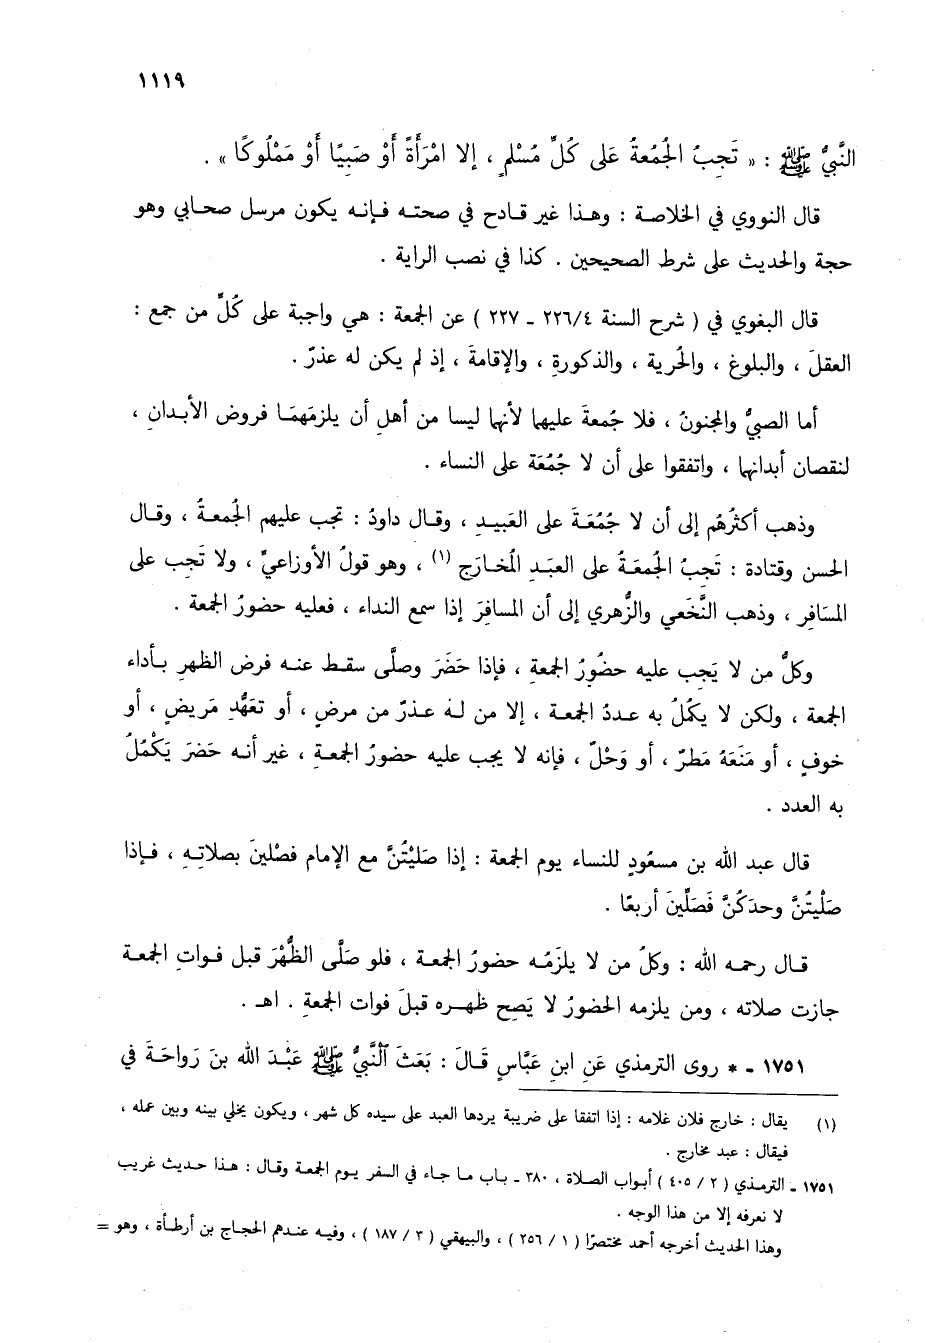 ١١١٩
النَّبِيُّ ﷺ : « تَجِبُ الجُمُعَةُ عَلى كُلِّ مُسْلمٍ ، إلا امْرَأَةً أَوْ صَبِيًا أَوْ مَمْلُوكًا » .
قال النووي في الخلاصة : وهـذا غير قـادح في صحتـه فـإنـه يكون مرسل صحابي وهو
حجة والحديث على شرط الصحيحين . كذا في نصب الراية .
قال البغوي في ( شرح السنة ٢٢٦/٤ ـ ٢٢٧ ) عن الجمعة : هي واجبة على كُلِّ من جمع :
العقلَ ، والبلوغَ ، والحُرية ، والذكورةِ ، والإقامةَ ، إذ لم يكن له عذرٌ .
أما الصبيُّ والمجنونُ ، فلا جُمعةَ عليهما لأنهما ليسا من أهلِ أن يلزمَهمَا فروض الأبدانِ ،
لنقصان أبدانهما ، واتفقوا على أن لا جُمُعَة على النساء .
وذهب أكثرُهُم إلى أن لا جُمُعَةَ على العَبيـدِ ، وقـال داودُ : تجب عليهم الجُمعـةُ ، وقـال
الحسن وقتادة : تَجبُ الجُمعَـةُ على العبَـدِ المُخـارَجِ (١) ، وهو قولُ الأوزاعيِّ ، ولا تَجب على
المسَافِرِ ، وذهب النَّخَعي والزُّهري إلى أن المسافِرَ إذا سمع النداء ، فعليه حضورُ الجمعة .
وكلُّ من لا يَجِب عليه حضُورُ الجمعةِ ، فإذا حَضَرَ وصلَّى سقـط عنـه فرض الظهرِ بـأداء
الجمعة ، ولكن لا يكمُلُ به عـددُ الجمعـة ، إلا من لـهُ عـذرٌ من مرضٍ ، أو تعَهُّدِ مَريضٍ ، أو
خوفٍ ، أو مَنَعَهُ مَطَرٌ ، أو وَحْلٌ ، فإنه لا يجب عليه حضورُ الجمعـةِ ، غير أنـه حَضرَ يَكْمُلُ
به العدد .
قال عبد الله بن مسعُودٍ للنساء يوم الجمعة : إذا صَليْتُنَّ مع الإمام فصْلينَ بصلاتِـهِ ، فـإذا
صَلْيتُنَّ وحدَكُنَّ فَصَلِّينَ أربعًا .
قـال رحمـه الله : وكلُ من لا يلزَمُـه حضورُ الجمعـة ، فلو صَلَّى الظُّهْرَ قبل فـواتِ الجمعـة
جازت صلاته ، ومن يلزمه الحضورُ لا يَصح ظهـره قبلَ فوات الجمعةِ . اهـ .
١٧٥١ ـ * روى الترمذي عَنِ ابنِ عَبَّاسٍ قَالَ : بَعَثَ ٱلنَّبِيُّ ﷺ عَبْـدَ الله بنَ رَواحَـةَ في
(١) يقال : خارج فلان غلامه : إذا اتفقا على ضريبة يردها العبد على سيده كل شهر ، ويكون يخلي بينه وبين عمله ،
فيقال : عبد مخارج .
١٧٥١ ـ الترمذي ( ٢ / ٤٠٥ ) أبواب الصلاة ، ٣٨٠ ـ باب ما جاء في السفر يوم الجمعة وقال : هـذا حـديث غريب
لا نعرفه إلا من هذا الوجه .
وهذا الحديث أخرجه أحمد مختصرًا ( ١ / ٢٥٦ ) ، والبيهقي ( ٣ / ١٨٧ ) ، وفيه عندهم الحجاج بن أرطأة ، وهو =